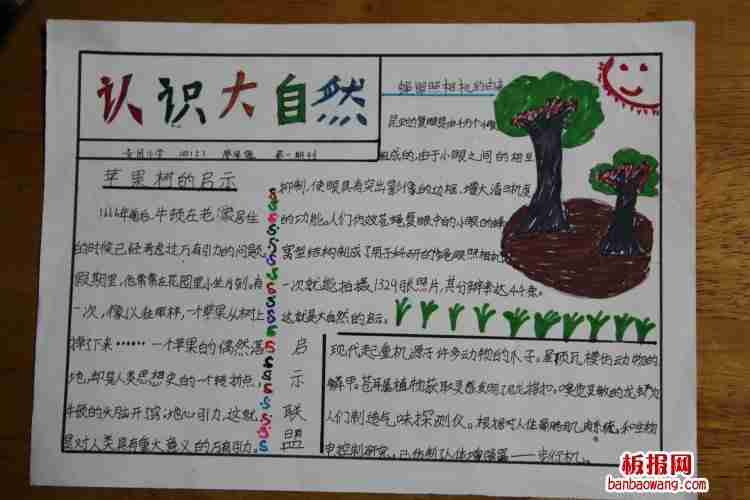 认识大自然
第一期刊
苹果树的启示
1666年前后,牛顿在老家居住
的时候已经考虑过万有引力的问题。
假期里,他常常在花园里小坐片刻。有
一次,像以往那样,一个苹果从树上
掉下来……一个苹果的偶然落
地,却是人类思想史的一个转折点,
牛顿的头脑开了窍:地心引力,这就
是对人类具有重大意义的万有引力。
蝇眼照相机的由来
昆虫的复眼是由千万个小眼
组成的,由于小眼之间的相互
抑制,使眼具有突出影像的边框,增大清晰度
的功能。人们仿效苍蝇复眼中的小眼的蜂
窝型结构制成了用于科研的蝇眼照相机
一次就能拍摄1329张照片,其分辨率达4千条。
这就是大自然的启示。
启示联盟
现代起重机源于许多动物的爪子。屋顶瓦楞仿动物的
鳞甲。苍耳属植物获取灵感发明了尼龙搭扣。嗅觉灵敏的龙虾为
人们制造气味探测仪。根据对人体骨骼肌肉系统和生物
电控制研究,已仿制了人体增强器——步行机。
板报网
banbaowang.com